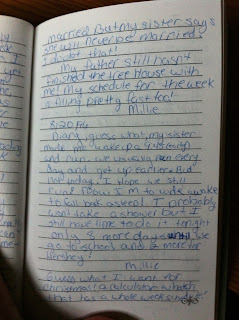 married. But my sister says
she will never be married
I doubt that!
My father still hasn't
finished the tree House with
me! My schedule for the week
is filling pretty fast too!
Millie
8:20 PM
Diary, guess what, my sister
made me wake up a 4:45
and run. We usually run every
day and get up earlier. But
today I hope we still
run! Now I'm to wide awake
to fall back asleep! I probably
wont take a shower but I
still have time to do it tonight
only 8 more days until we
go to school and 2 more for
Hershey!
Millie
Guess what I want for
christmas! a calculator watch
that has a whole week